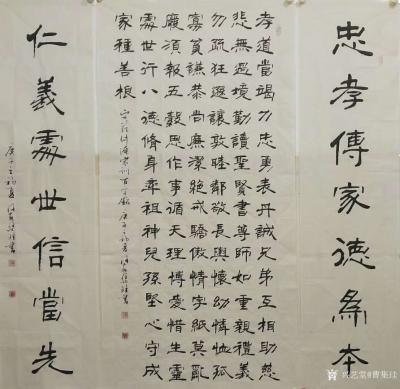 忠孝傳家德為本
孝道當竭力忠勇表丹誠兄弟互相助慈
悲無過境勤讀聖賢書尊師如重親禮義
勿疏狂遜讓敦睦鄰敬長與懷幼憐恤孤
寡貧謙恭尚廉潔絕戒驕傲情字紙莫亂
廢須報五穀恩作事循天理博愛惜生靈
處世行八德脩身率祖神兒孫堅心守成
家種善根
家訓百字銘庚子之初夏
仁義處世信當先
庚子之初夏
兴艺堂@曹集珪